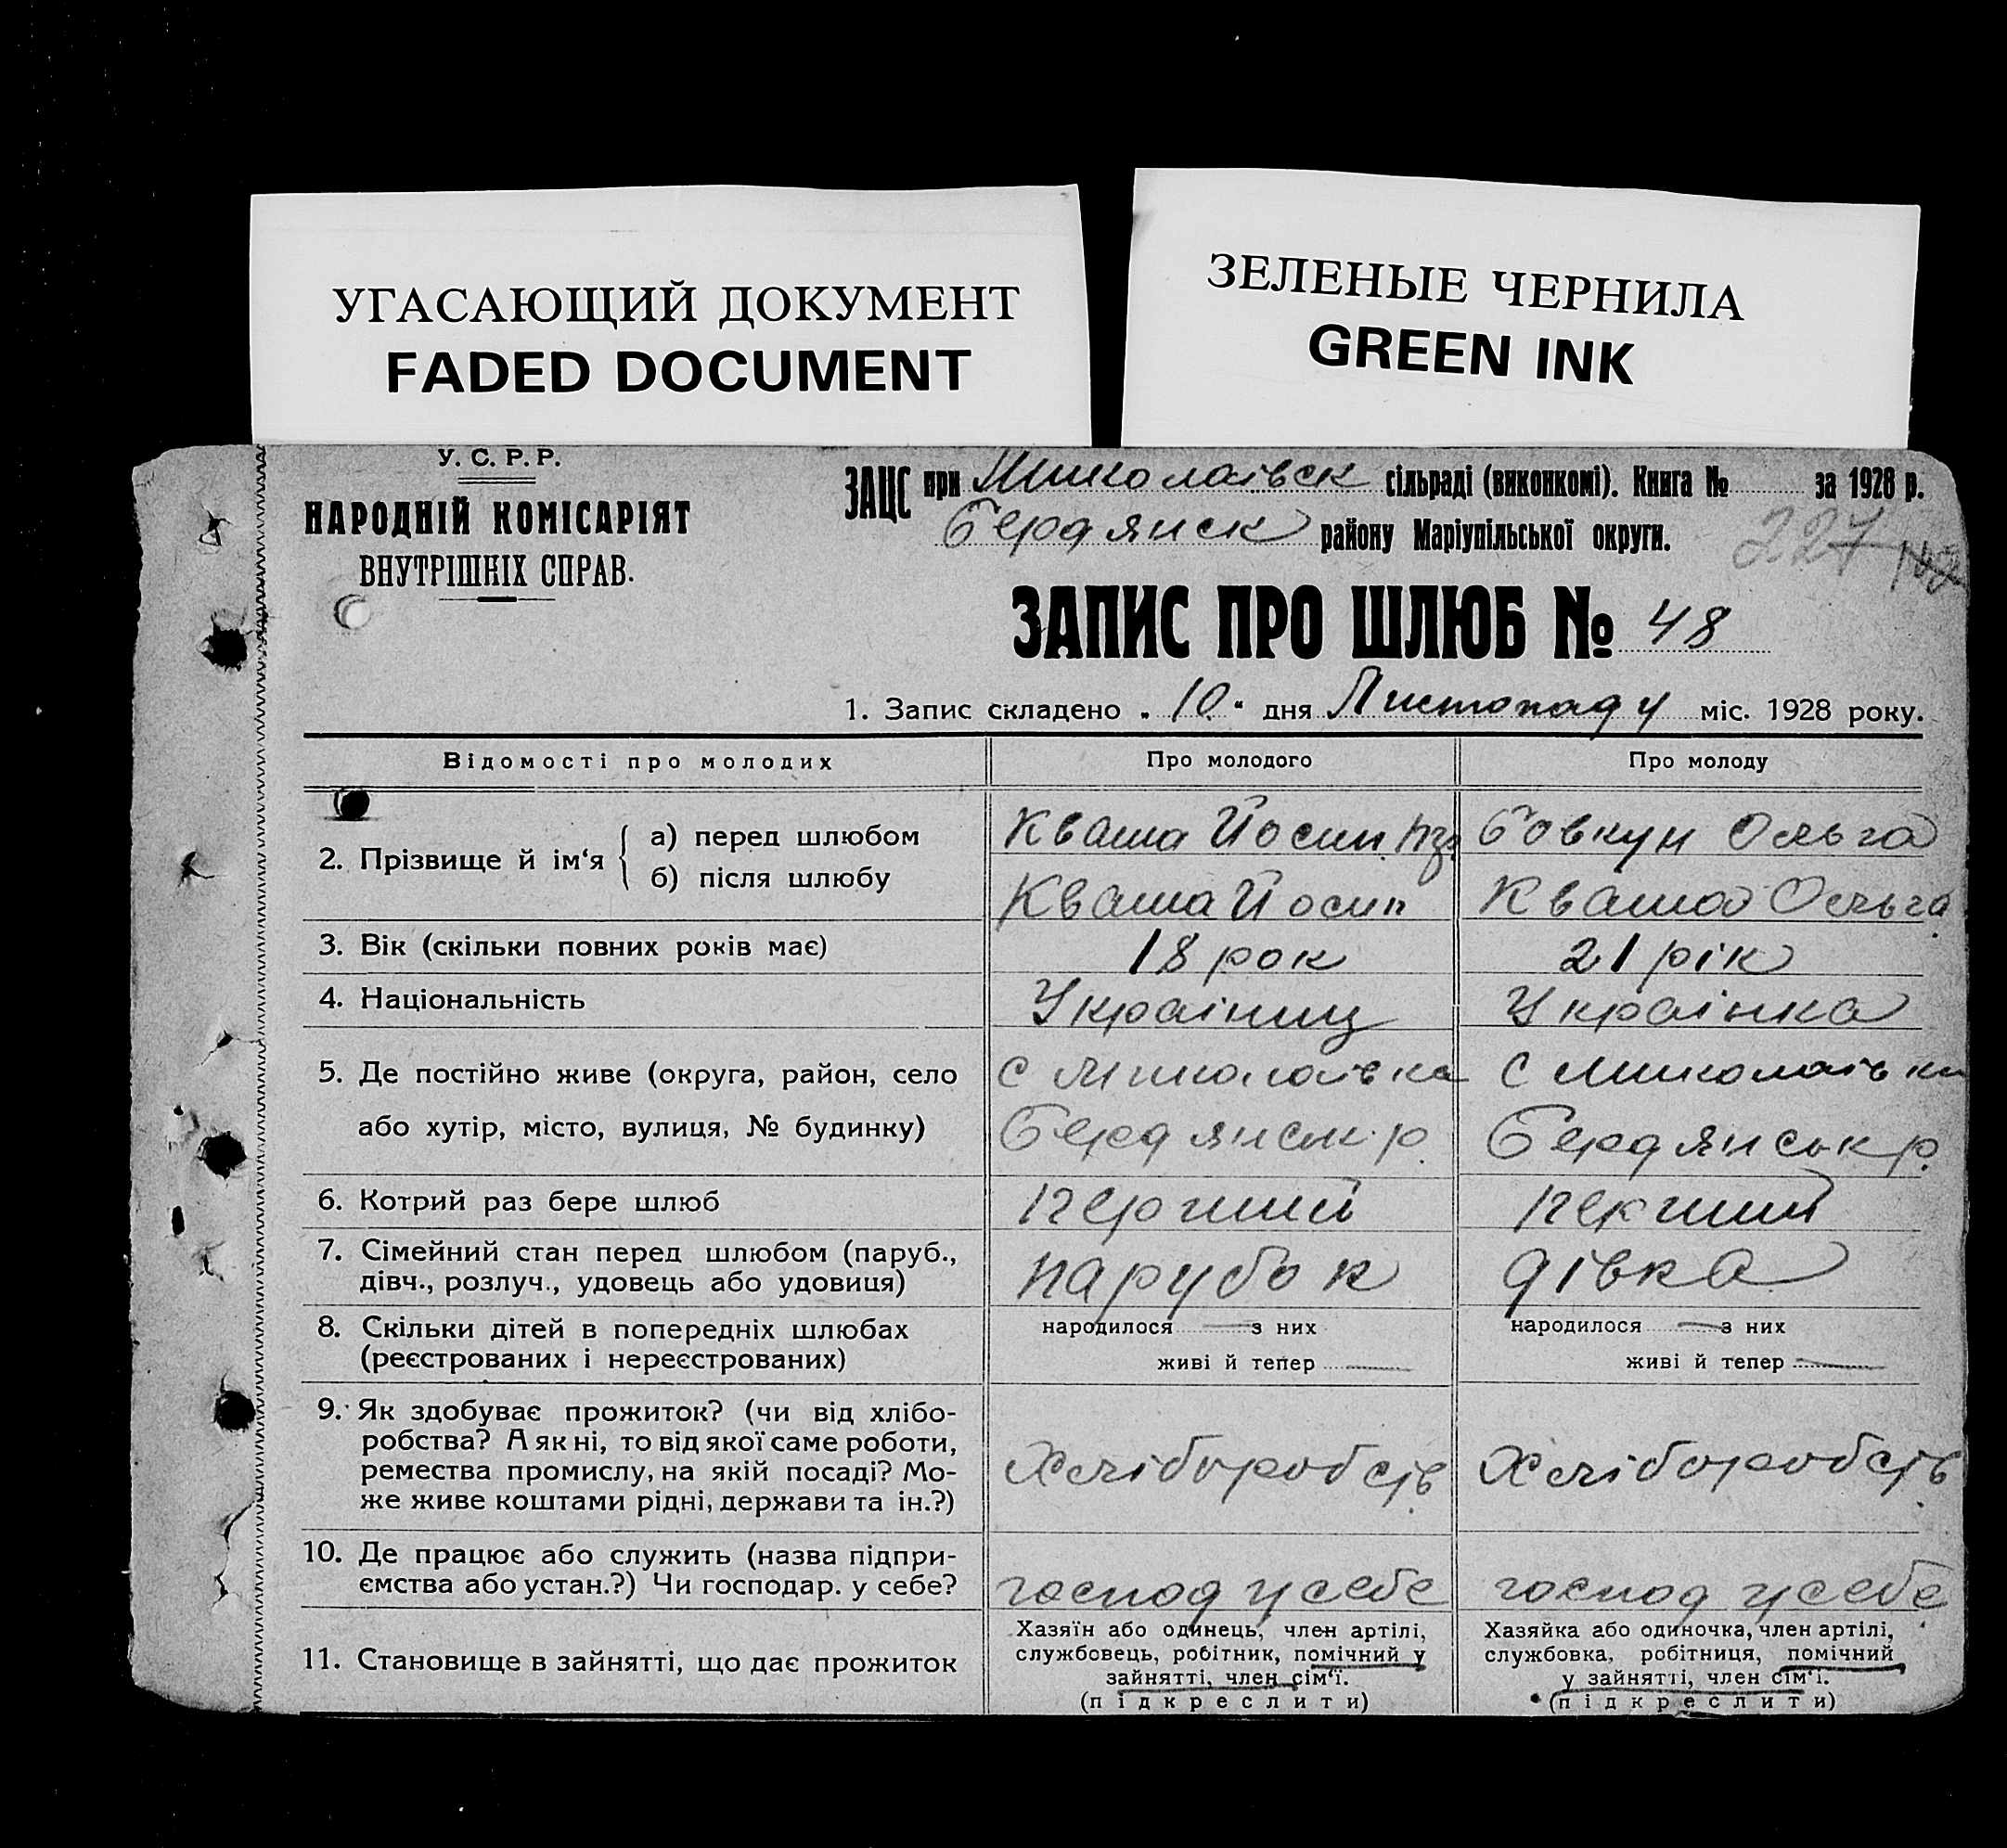 УГАСАЮЩИЙ ДОКУМЕНТ
FADED DOCUMENT
ЗЕЛЕНЫЕ ЧЕРНИЛА
GREEN INK
У. С. Р. Р.
НАРОДНІЙ КОМІСАРІЯТ
ВНУТРІШНІХ СПРАВ.
ЗАЦС при Миколаівск сільраді (виконкомі). Книга № за 1928 р.
Бердянск району Маріупільської округи.
227
ЗАПИС ПРО ШЛЮБ № 48
1. Запис складено „ 10 “ дня Листопаду міс. 1928 року.
Відомості про молодих Про молодого Про молоду
2. Прізвище й ім‘я
а) перед шлюбом Кваша Йосип Бовкун Ольга
б) після шлюбу Кваша Йосип Кваша Ольга
3. Вік (скільки повних років має) 18 рок 21 рік
4. Національність Украіниц Украінка
5. Де постійно живе (округа, район, село С Миколаівка С Миколаівки
або хутір, місто, вулиця, № будинку) Бердянськ. р. Бердянськ р.
6. Котрий раз бере шлюб перший перший
7. Сімейний стан перед шлюбом (паруб.,
дівч., розлуч., удовець або удовиця) парубок дівка
8. Скільки дітей в попередніх шлюбах народилося — з них народилося — з них
(реєстрованих і нереєстрованих) живі й тепер — живі й тепер —
9. Як здобуває прожиток? (чи від хлібо-
робства? А як ні, то від якої саме роботи,
ремества промислу, на якій посаді? Мо- Хліборобств Хліборобств
же живе коштами рідні, держави та ін.?)
10. Де працює або служить (назва підпри-
ємства або устан.?) Чи господар. у себе? господ у себе господ у себе
11. Становище в зайнятті, що дає прожиток
Хазяїн або одинець, член артілі,
службовець, робітник, помічний у
зайнятті, член сім‘ї.
(підкреслити)
Хазяйка або одиночка, член артілі,
службовка, робітниця, помічний
у зайнятті, член сім‘ї.
(підкреслити)